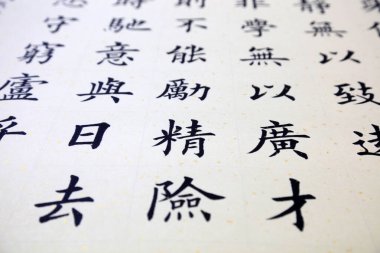 靜無以致遠
非學無以廣才
則不能勵精險
時馳意與日去
守窮廬